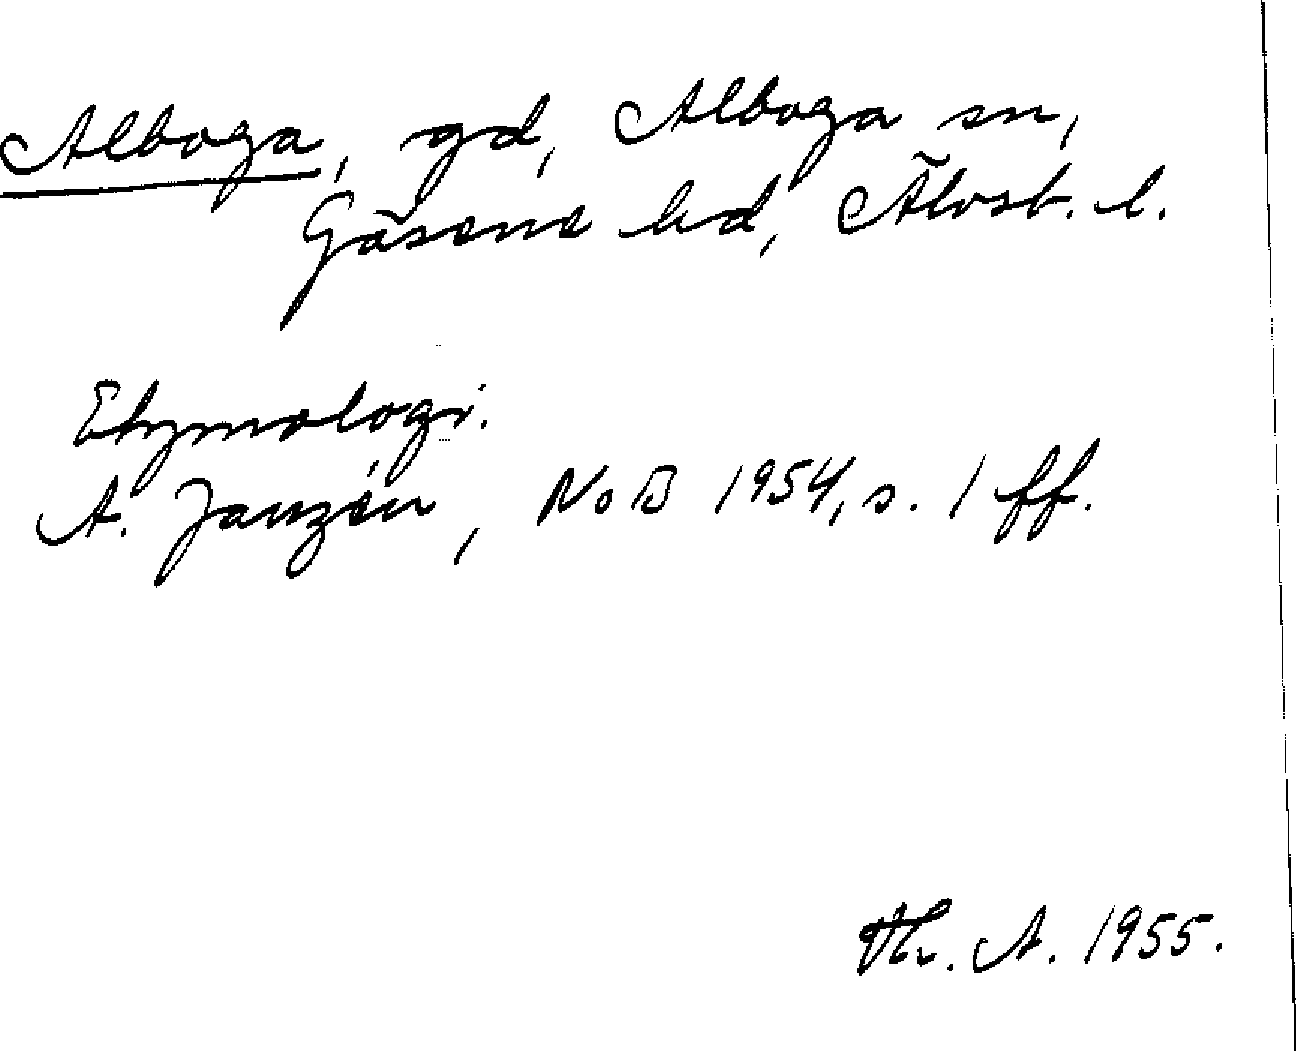 Alboga, gd, Alboga sn,
Gäsene hd, Älvsb. l.
Etymologi.
A. Janzén, NoB 1954, s. 1 ff.
Th. A. 1955.